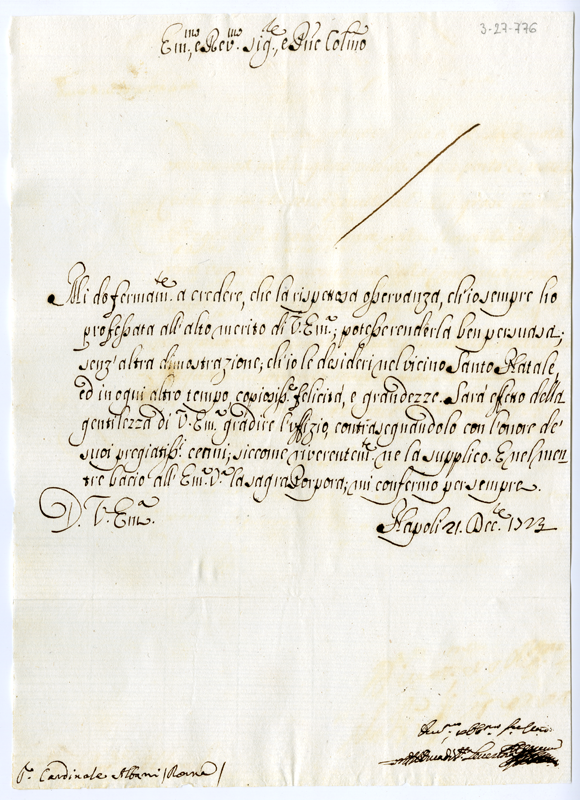 3-27-776
Em.mo, e Rev.mo Sig.re, e P.ne Col.mo
Mi do fermam.te a credere, che la rispettosa osservanza, ch'io sempre ho
professata all'alto merito di V. Em.a; potesse renderla ben persuasa;
senz'altra dimostrazione; ch'io le desideri nel vicino Santo Natale,
ed in ogni altro tempo copiosis.e felicità, e grandezze. Sarà effetto della
gentilezza di V. Em.a gradire l'uffizio, contrasegnandolo con l'onore de'
suoi pregiatis.i cenni; siccome riverentem.te ne la supplico. E nel men-
tre bacio all'Em.a V.a la sagra Porpora; mi confermo per sempre.
D. V. Em.a
Napoli 21. Dec.re 1723
S.r Cardinale Albani / Roma /